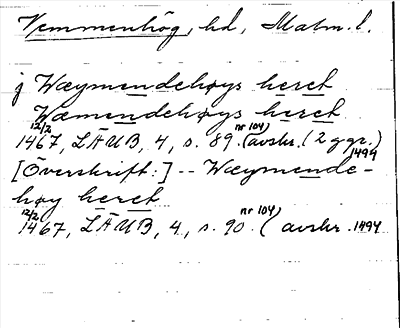 Vemmenhög, hd, Malm. l.
j Wæymendehøys heret
Wæmendehøys heret
12/2 1467, LÄUB, 4, s. 89. (nr 104) (avskr. (2 ggr.) 1494
[Överskrift:] -- Wæymende-
høy heret
12/2 1467, LÄUB, 4, s. 90. (nr 104) (avskr. 1494